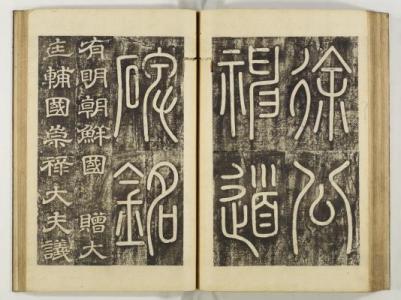 徐公
神道
碑銘
有明朝鮮國 贈大
匡輔國崇祿大夫議